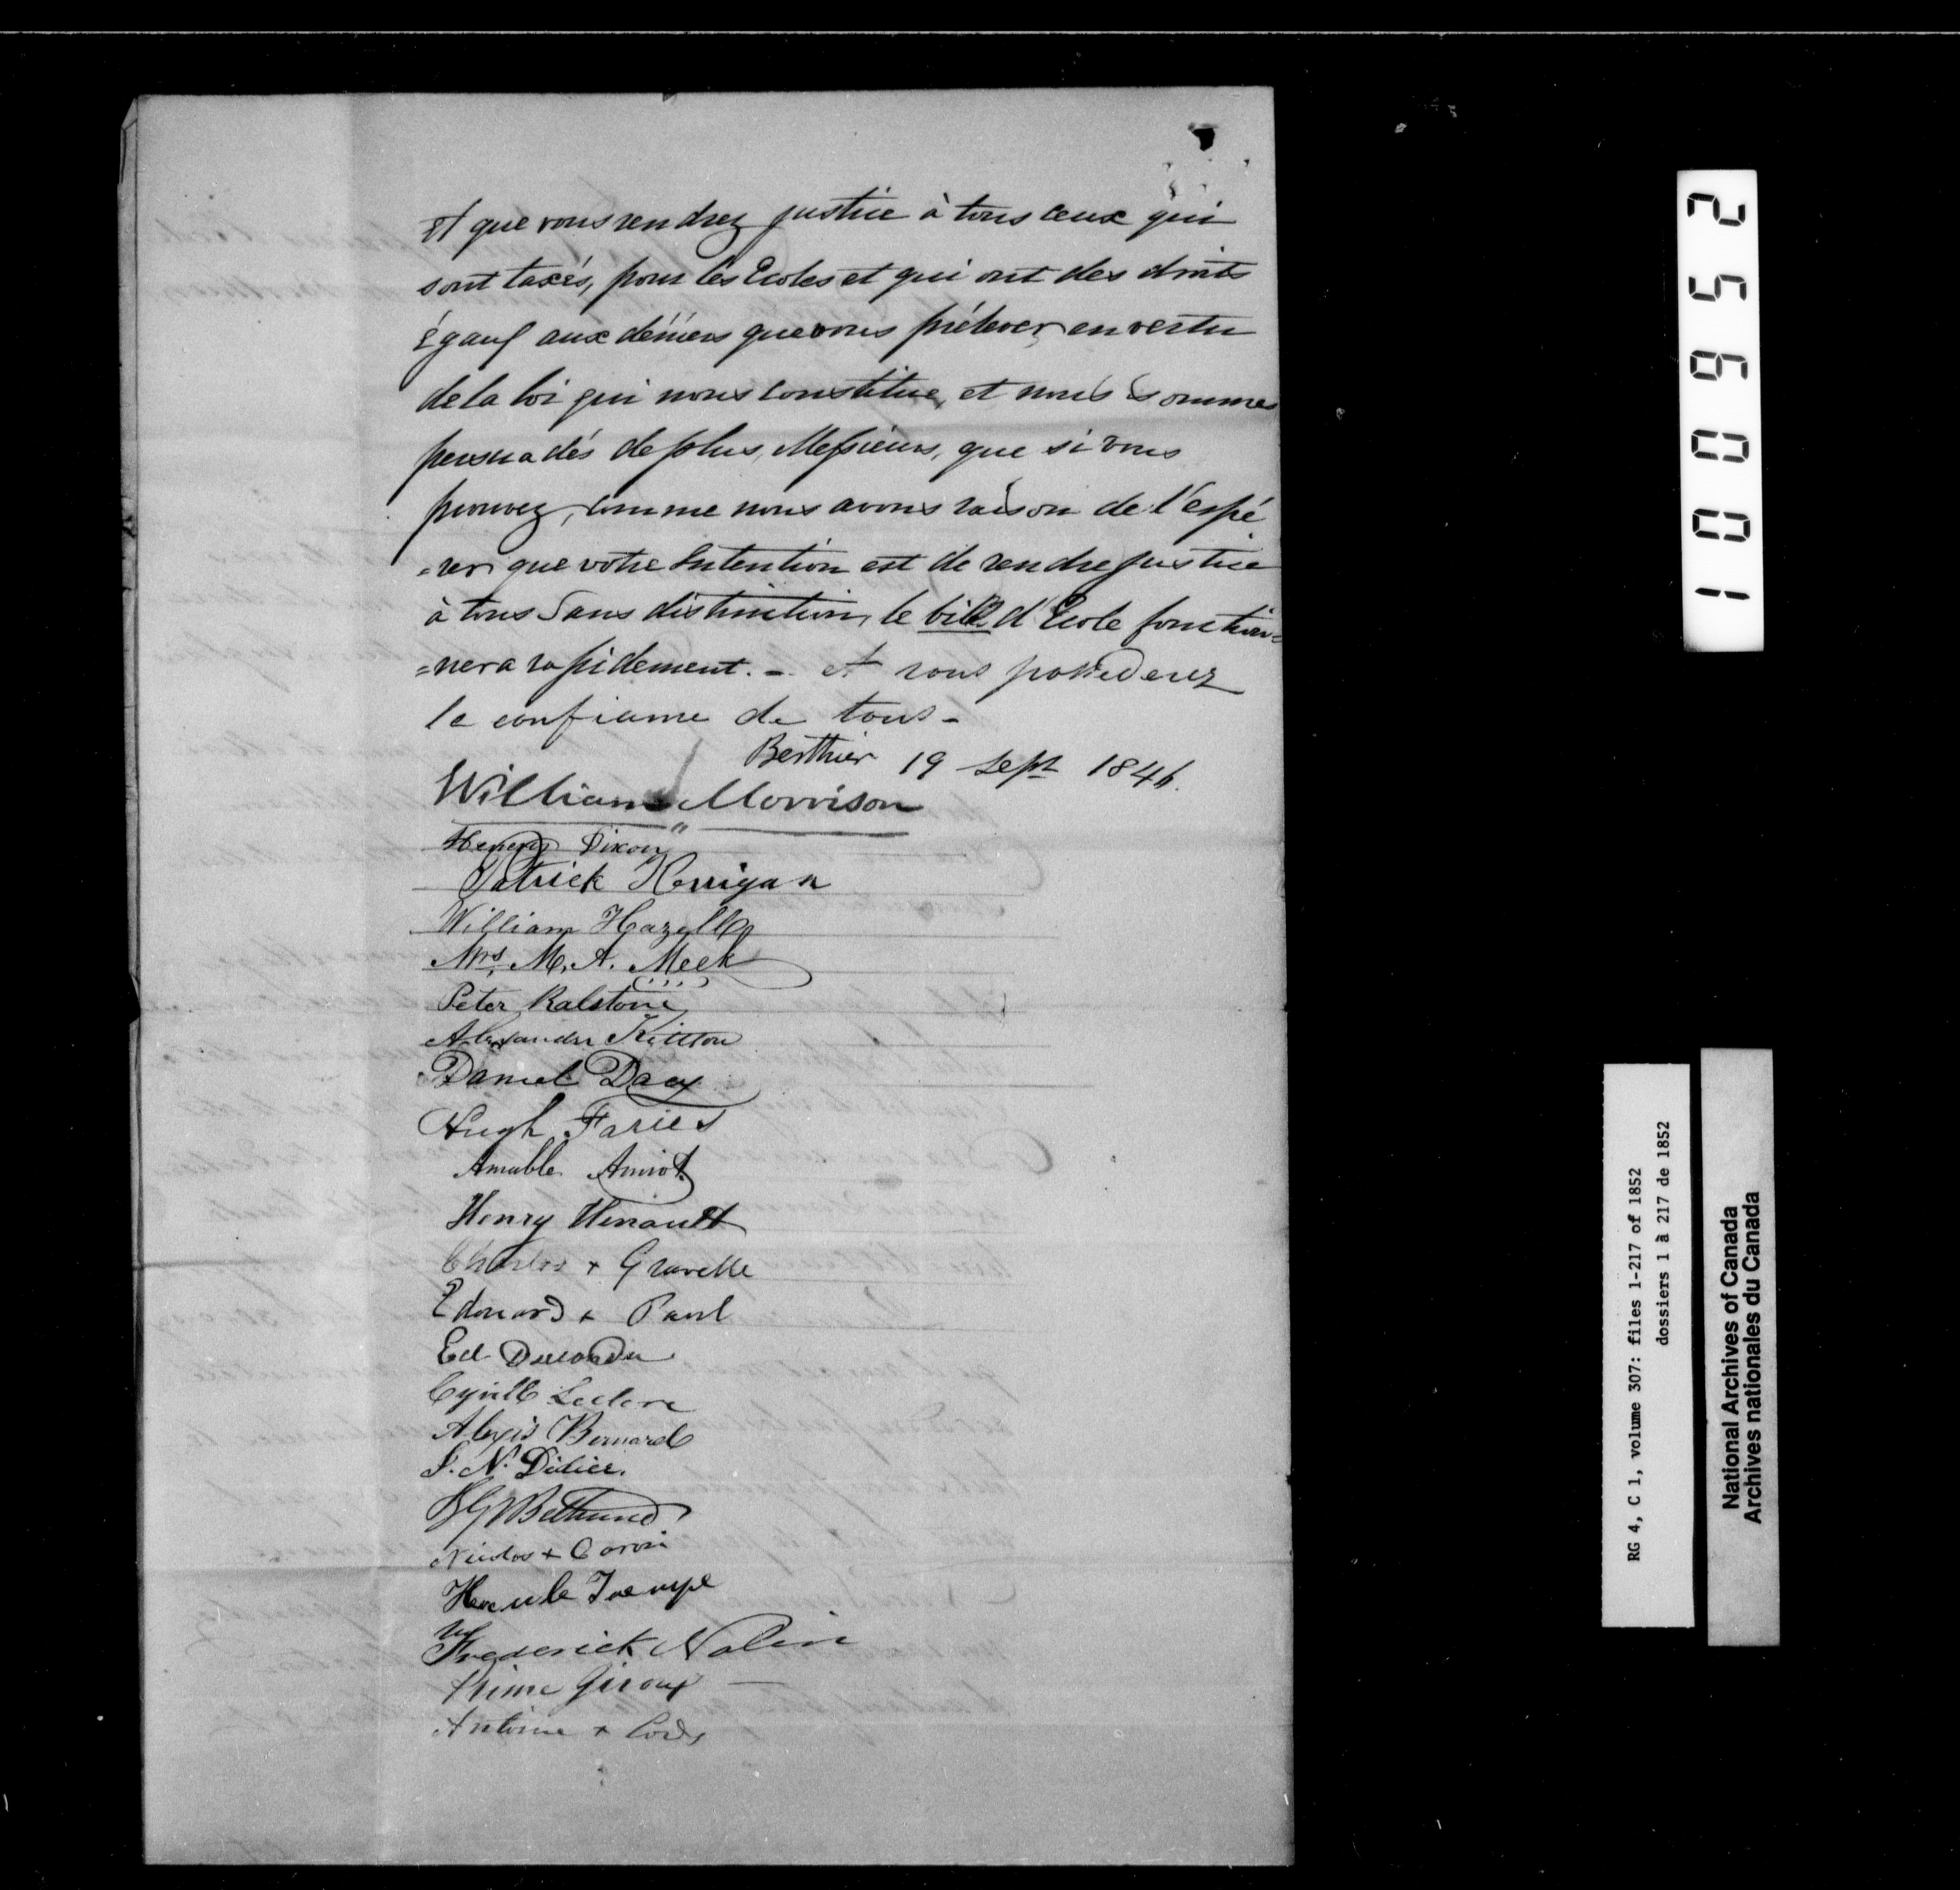 et que vous rendrez justice à tous ceux qui
sont taxés, pour les Ecoles et qui ont des droits
Égaux aux déniers que vous prélever en vertu
de la loi qui nous constitue, et nous sommes
persuadés de plus, Messieurs, que si vous
prouvez, comme nous avons raison de l'espé
=rer que votre Intention est de rendre justice
à tous Sans distinction, le bill d'Ecole fonction=
=nera rapidement. - et vous possederez
la confiance de tous -
Berthier 19 Sept 1846.
William Morrison
Henery Dixon
Patrick Kerrigan
William Hazell
Mrs. M. A. Meek
Peter Ralston
Alexander Kittson
Daniel Dacy
Hugh Faries
Amable Amiot
Henry Henault
Charles + Gravelle
Edouard + Paul
Ed
Cyrill Leclerc
Alexis Bernard
J. N. Didier.
Bethune
+
Hercule
Frederick Nolin
Prime Giroux
Antoine +
100952
RG 4, C 1, volume 307: files 1-217 of 1852
dossiers 1 à 217 de 1852
National Archives of Canada
Archives nationales du Canada